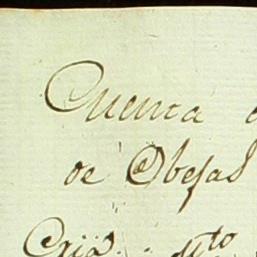 Cuenta
de Obejas
Cria